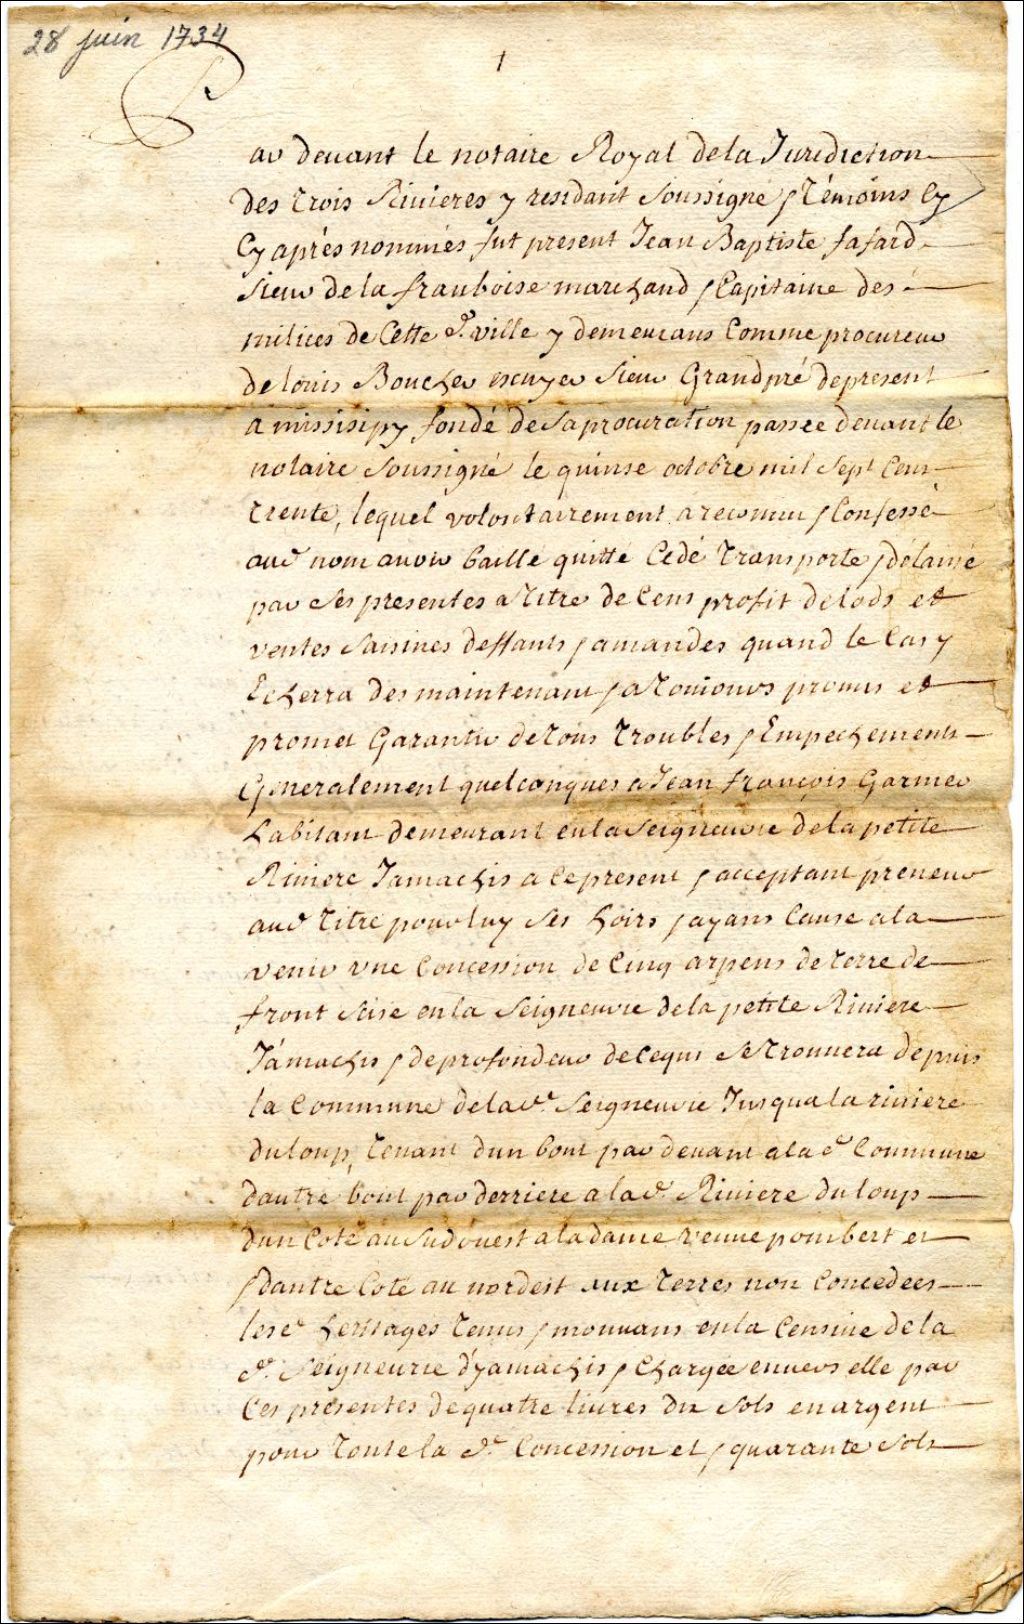 28 juin 1734
1
Par devant le notaire Royal de la Jurediction
des trois Rivieres y residant soussigne & Témoins cy
Cy aprés nommés fut present Jean Baptiste fafard
sieur de la frauboise marchand & Capitaine des
milices de Cette de. ville y demeurans Comme procureur
de louis Boucher escuyer sieur Grandpré de present
a missisipy fondé de sa procuration passee devant le
notaire soussigné le quinse octobre mil sept Cens
trente, lequel volontairement a reconnu & Confessé
aud nom avoir baillé quitté Cedé transporte & délaissé
par ses presentes a titre de Cens profit de lods et
ventes saisines deffauts & amandes quand le Cas y
Echerra des maintenant & a toujours promis et
promet Garantir de tous troubles & Empechements
Generalement quelconques a Jean françois Garnier
habitant demeurant en la seigneurie de la petite
Riviere Jamachis a Ce present & acceptant preneur
aud titre pour luy ses hoirs & ayans Cause a la
venir une Concession de Cinq arpens de terre de
front sise en la seigneurie de la petite Riviere
Jámachis & de profondeur de Ce qui se trouvera depuis
la Commune de lad. seigneurie Jusqua la riviere
du loup, tenant dun bout par devant a la d. Commune
dautre bout par derriere a la d. Riviere du loup
dun Coté au sudouest a la dame veuve pombert et
& dautre Coté au nordest aux terres non Concedees
lesd. heritages tenus & mouvans en la Censive de la
de. seigneurie dyamachis & Chargée envers elle par
Ces presentes de quatre livres dix sols en argent
pour toute la de. Concession et & quarante sols